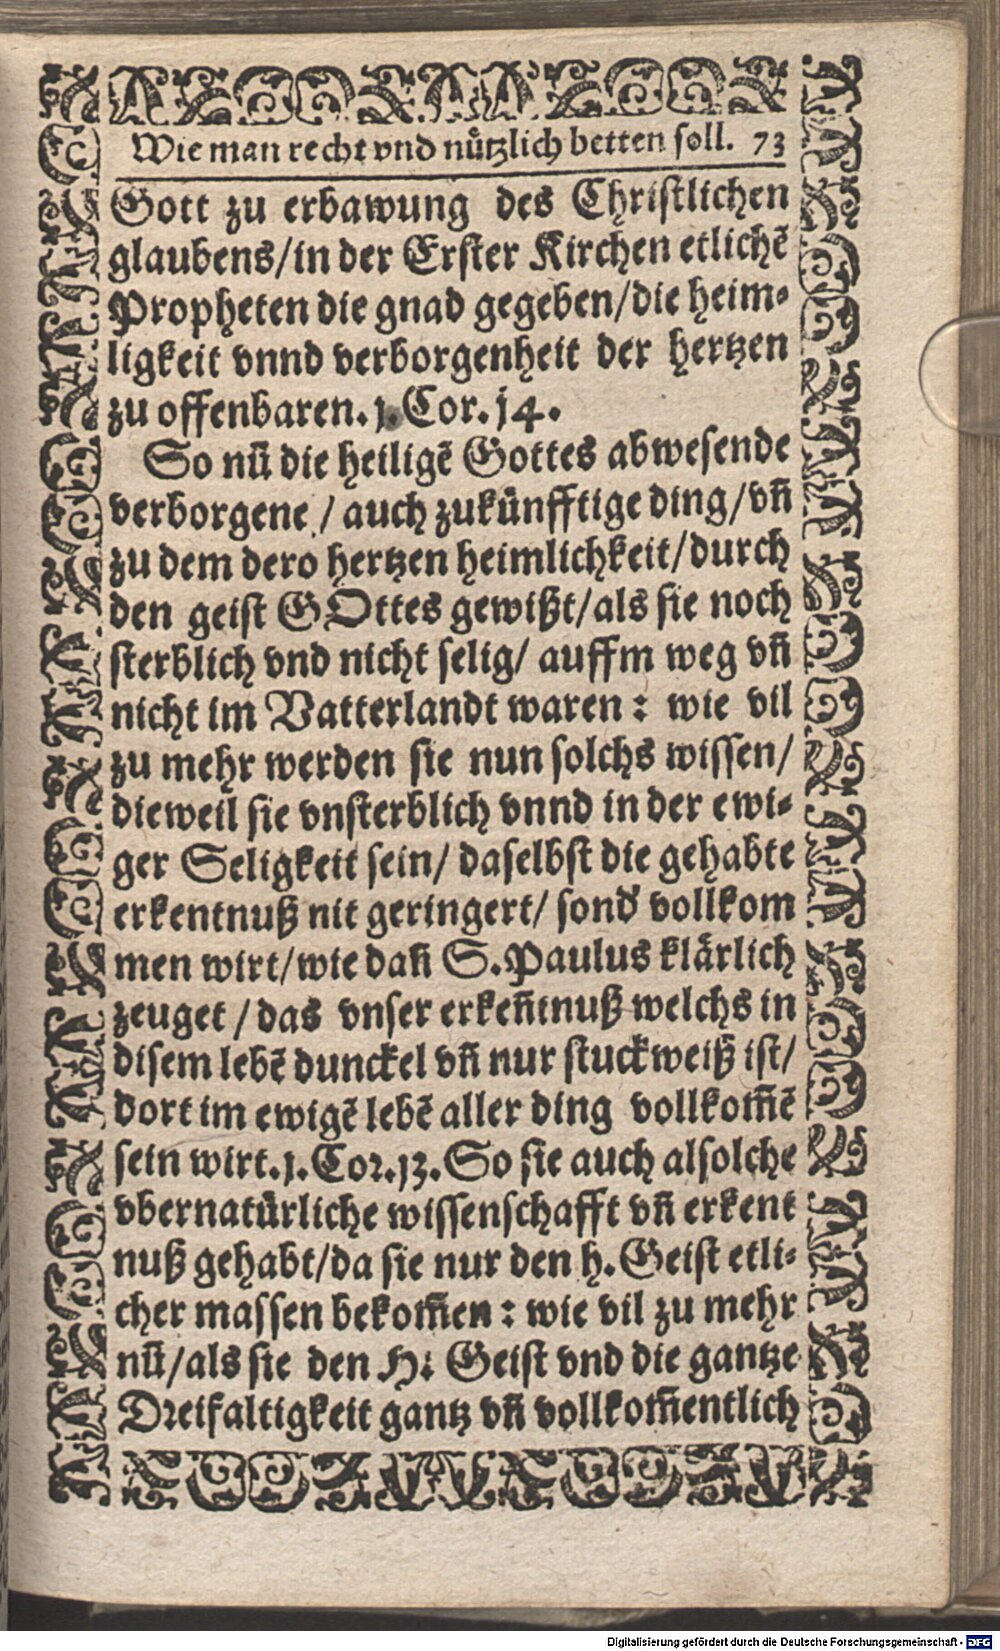 Wie man recht vnd nützlich betten soll. 73
Gott zu erbawung des Christlichen
glaubens/in der Erster Kirchen etlichẽ
Propheten die gnad gegeben/die heim⸗
ligkeit vnnd verborgenheit der hertzen
zu offenbaren. 1. Cor. 14.
So nũ die heiligẽ Gottes abwesende
verborgene / auch zukünfftige ding/vñ
zu dem dero hertzen heimlichkeit/durch
den geist GOttes gewißt/als sie noch
sterblich vnd nicht selig/ auffm weg vñ
nicht im Vatterlandt waren : wie vil
zu mehr werden sie nun solchs wissen/
dieweil sie vnsterblich vnnd in der ewi⸗
ger Seligkeit sein/ daselbst die gehabte
erkentnuß nit geringert/ sond' vollkom
men wirt/wie dañ S. Paulus klärlich
zeuget / das vnser erkeñtnuß welchs in
disem lebẽ dunckel vñ nur stuckweiß ist/
dort im ewigẽ lebẽ aller ding vollkom̃ẽ
sein wirt. 1. Cor. 13. So sie auch alsolche
vbernatürliche wissenschafft vñ erkent
nuß gehabt/da sie nur den h. Geist etli⸗
cher massen bekom̃en : wie vil zu mehr
nũ/als sie den H. Geist vnd die gantze
Dreifaltigkeit gantz vñ vollkom̃entlich
Digitalisierung gefördert durch die Deutsche Forschungsgemeinschaft - DFG